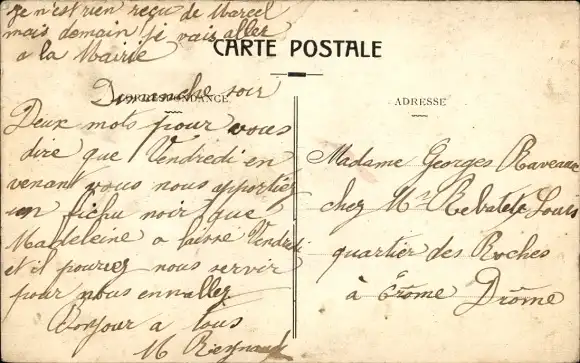 Je n'est rien reçu de Marcel
mais demain je vais aller
a la Mairie
CARTE POSTALE
CORRESPONDANCE
Dimanche soir
Deux mots pour vous
dire que Vendredi en
venant vous nous apportiez
un fichu noir que
Madeleine a laisse Vendredi
et il pourrez nous servir
pour nous ennallez
Bonjour a tous
M Reynaud
ADRESSE
Madame Georges Raveau
chez Mr Louis
quartier des Roches
à Drôme